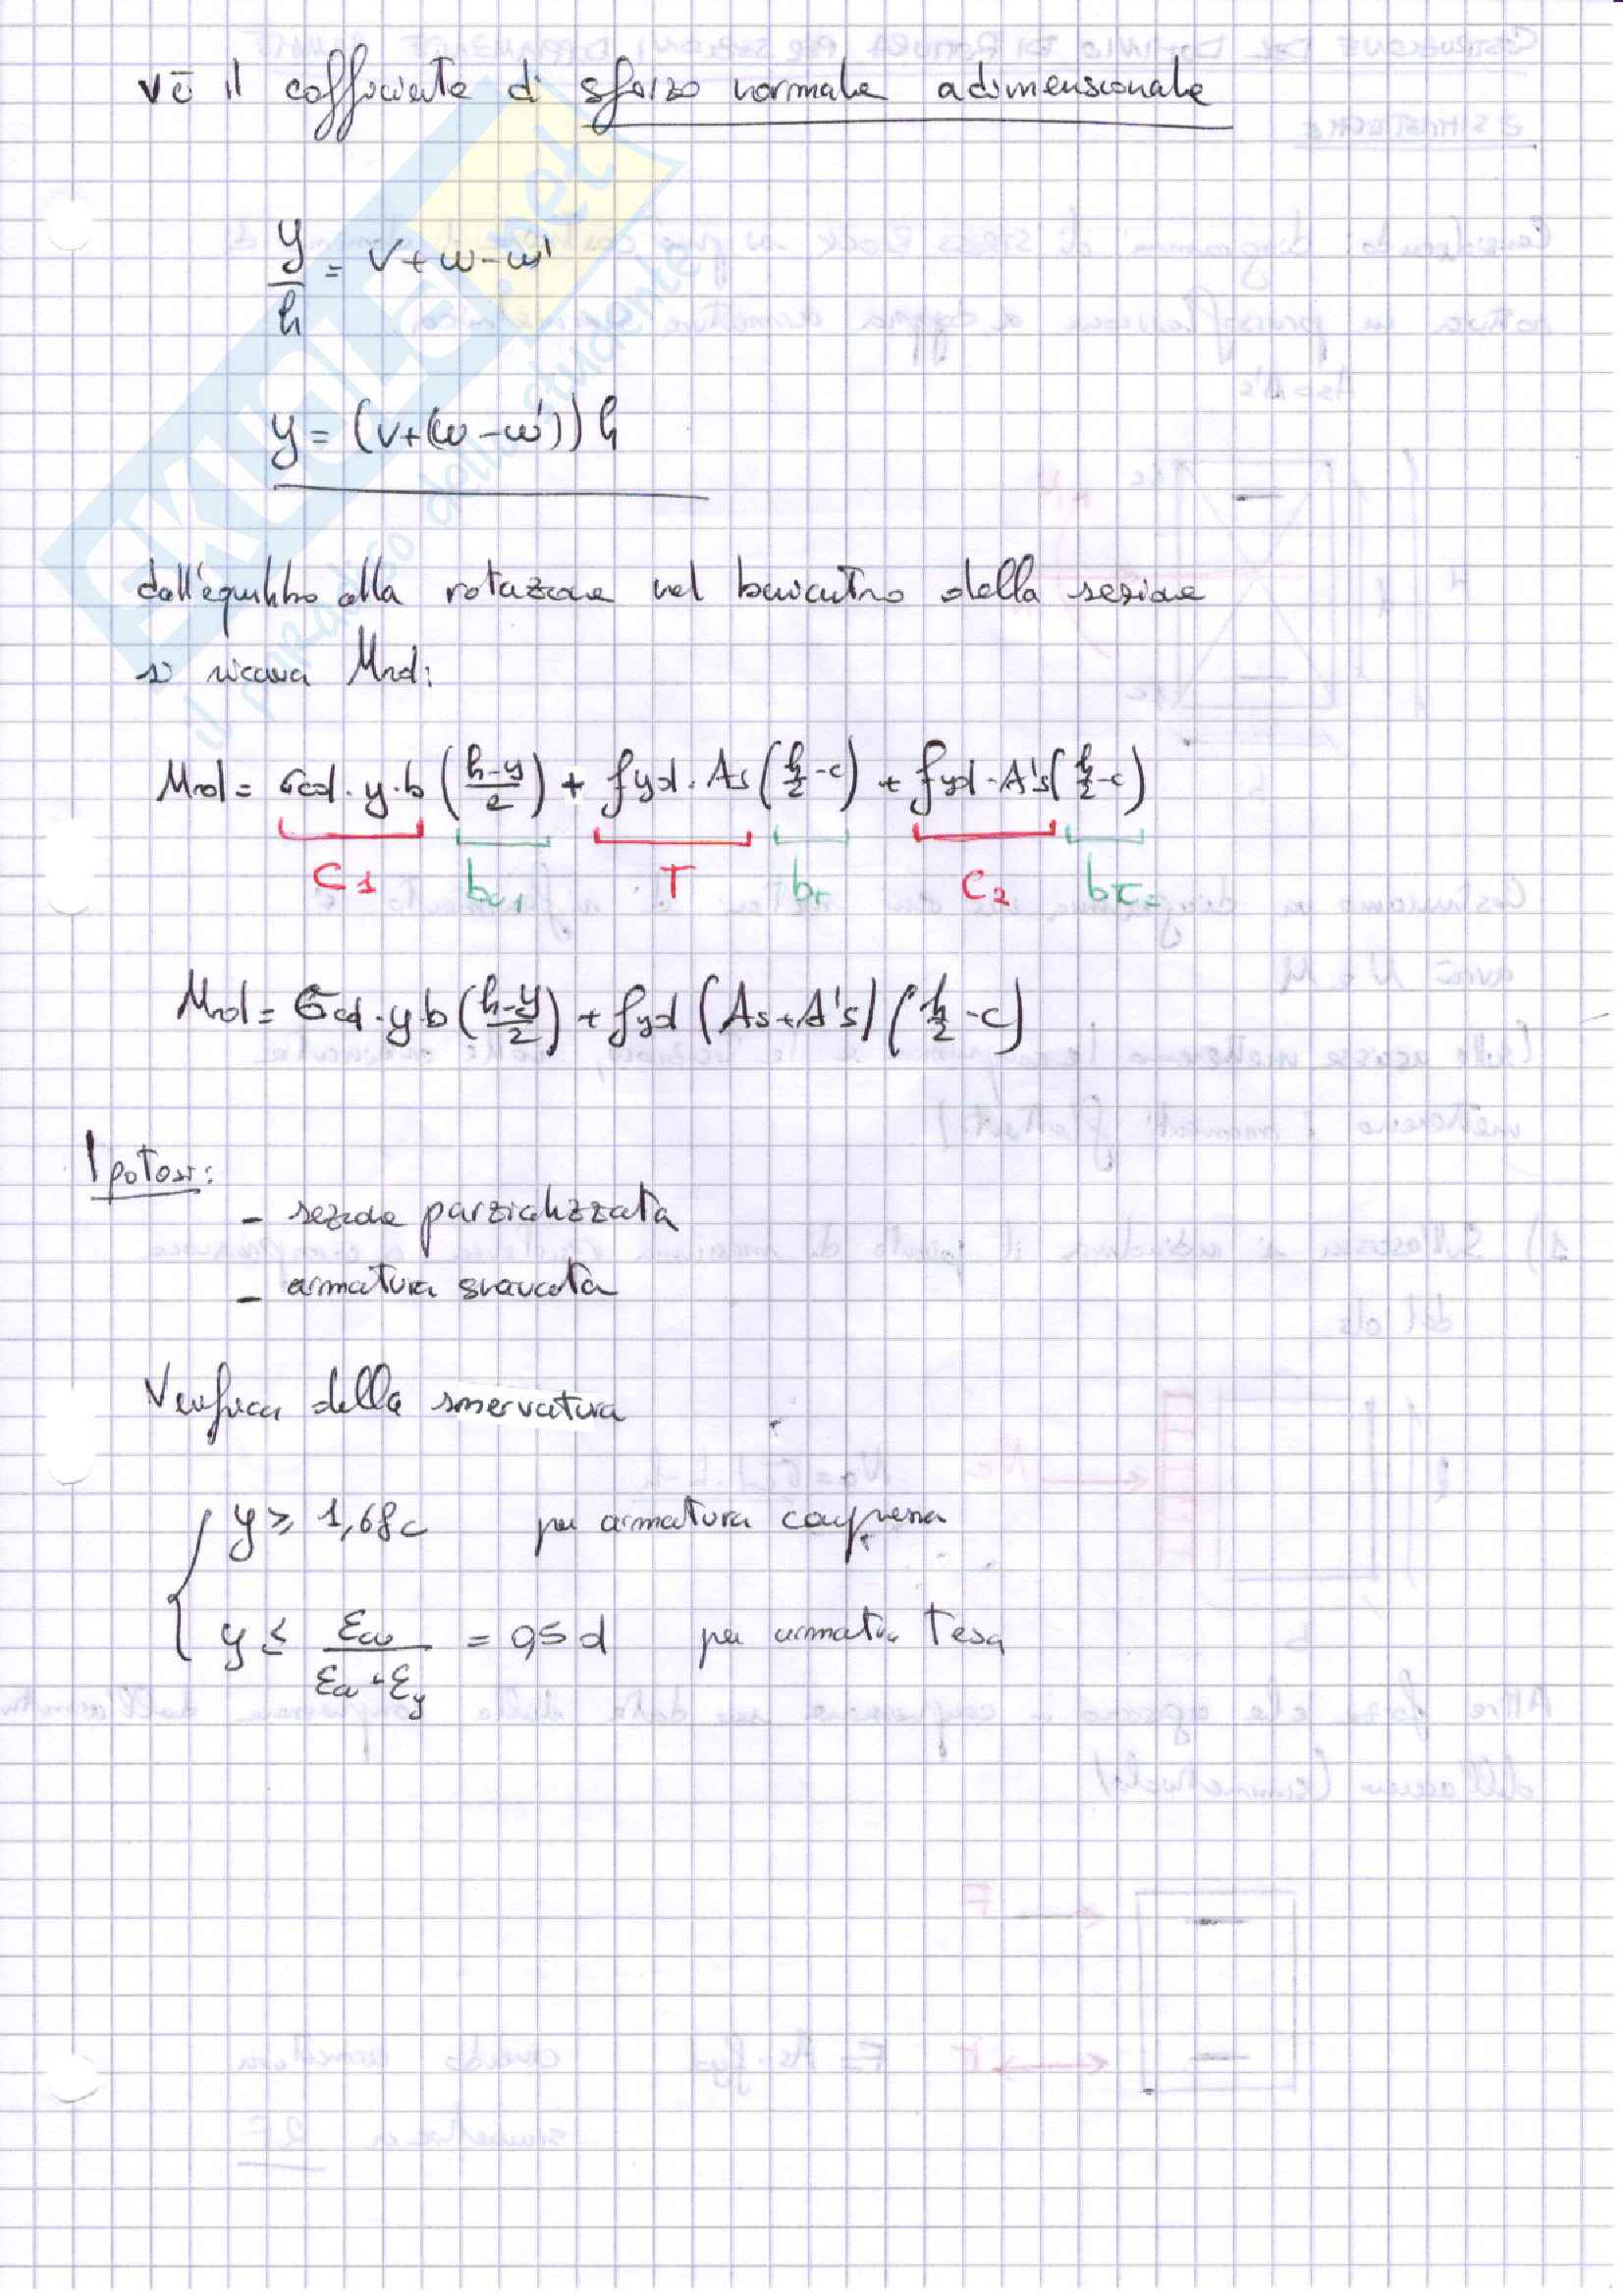 ν è il coefficiente di sforzo normale adimensionale
y/h = ν+ω-ω'
y = (ν+(ω-ω'))h
dall'equilibrio alla rotazione nel baricentro della sezione
si ricava Mrd:
Mrd = σcd · y · b ((h-y)/2) + fyd · As (h/2 -c) + fyd · A's (h/2 -c)
C1 bc1 T bT C2 bc2
Mrd = σcd · y · b ((h-y)/2) + fyd (As+A's) (h/2 -c)
Ipotesi:
- sezione parzializzata
- armatura snervata
Verifica della snervatura
y ≥ 1,68c per armatura compressa
y ≤ εcu/(εcu+εy) = 0,5 d per armatura tesa
SKUOLA.net
il paradiso dello studente